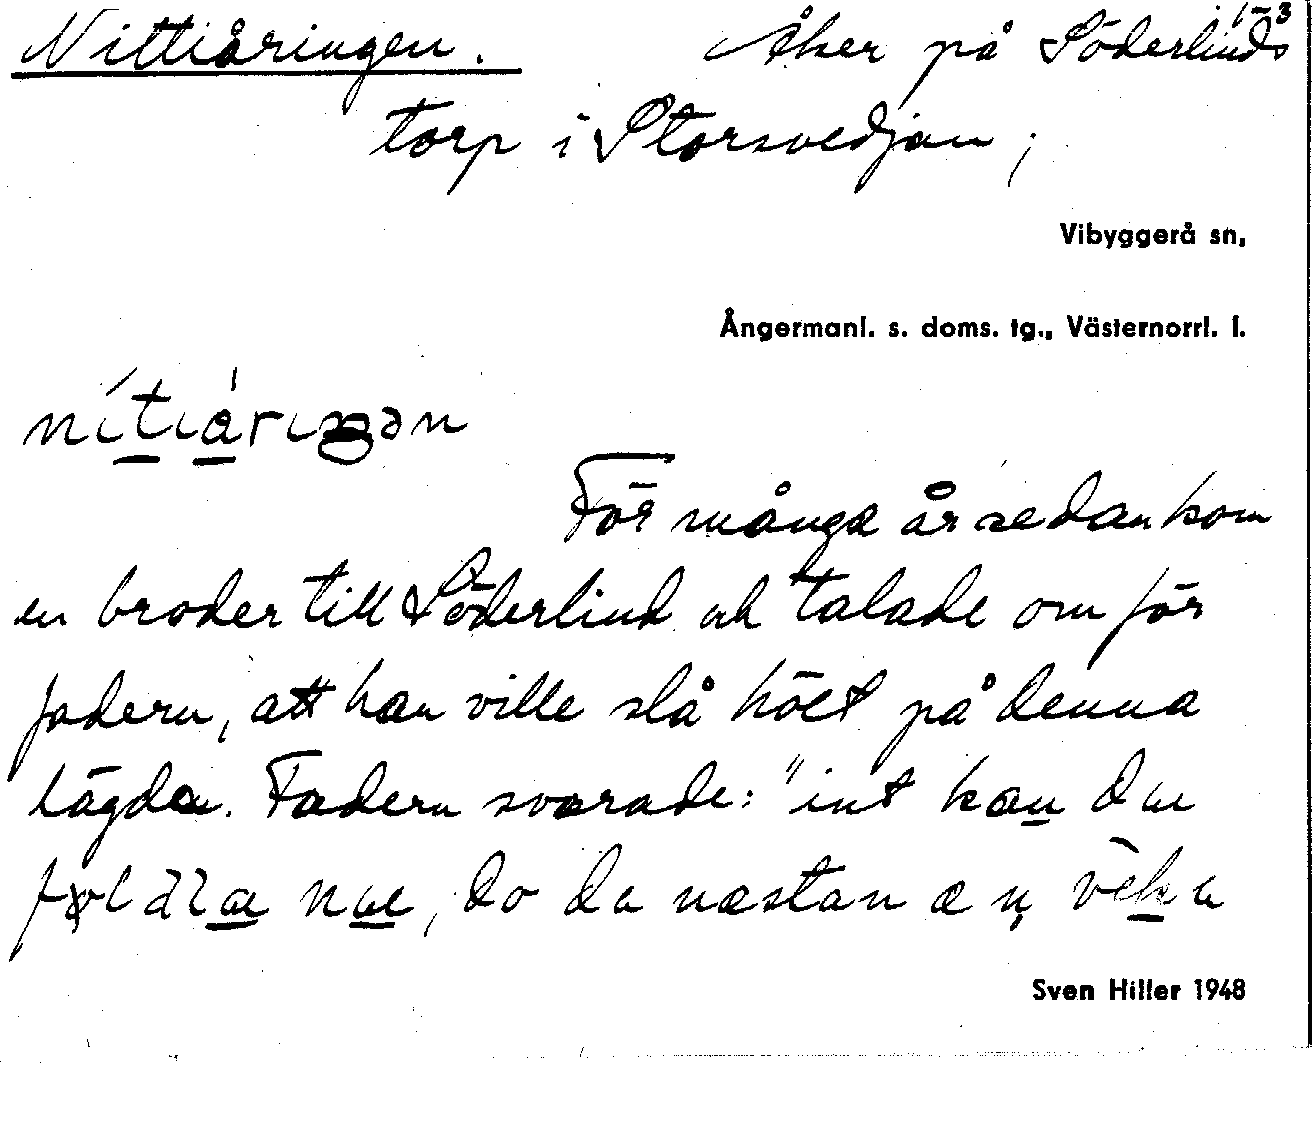 1-3
Nittiåringen. Åker på Söderlinds
torp i Storsvedjan;
Vibyggerå sn,
Ångermanl. s. doms. tg., Västernorrl. l.
nítiàriŋən
För många år sedan kom
en broder till Söderlind och talade om för
fadern, att han ville slå höet på denna
lägda. Fadern svarade: "int kan du
næ, do du næstan æṇ vèka
Sven Hiller 1948